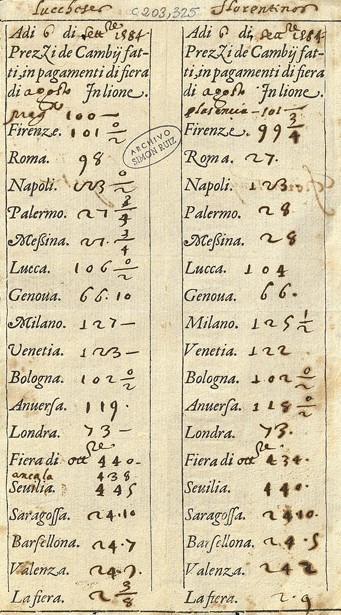 Luccheses
Adi 6 di settre 1584
Prezzi de Cambij fat-
ti, in pagamenti di fiera
di agosto In lione.
100 —
Firenze. 101 0/2
Roma. 98
Napoli. 123 0/2
Palermo. 27 3/4
Messina. 27. 3/4
Lucca. 106 0/2
Genoua. 66.10
Milano. 127 —
Venetia. 123 —
Bologna. 102 0/2
Anuersa. 119.
Londra. 73 —
Fiera di ottre 440 -
438
Seuilia. 445
Saragossa. 24.10
Barsellona. 24.7
Valenza. 24.7.
La fiera. 2 3/8
C 203, 325
ARCHIVO
SIMON RUIZ
Florentinos
Adi 6 di settre 1584
Prezzi de Cambij fat-
ti, in pagamenti di fiera
di agosto In lione.
plasencia - 101 —
Firenze. 99 3/4
Roma. 27.
Napoli. 123.
Palermo. 28
Messina. 28
Lucca. 104
Genoua. 66.
Milano. 125 1/2
Venetia. 122
Bologna. 102 0/2
Anuersa. 118 0/2
Londra. 73.
Fiera di ottre 434.
Seuilia. 440.
Saragossa. 24.10.
Barsellona. 24.5
Valenza. 24 2
La fiera. 2.9